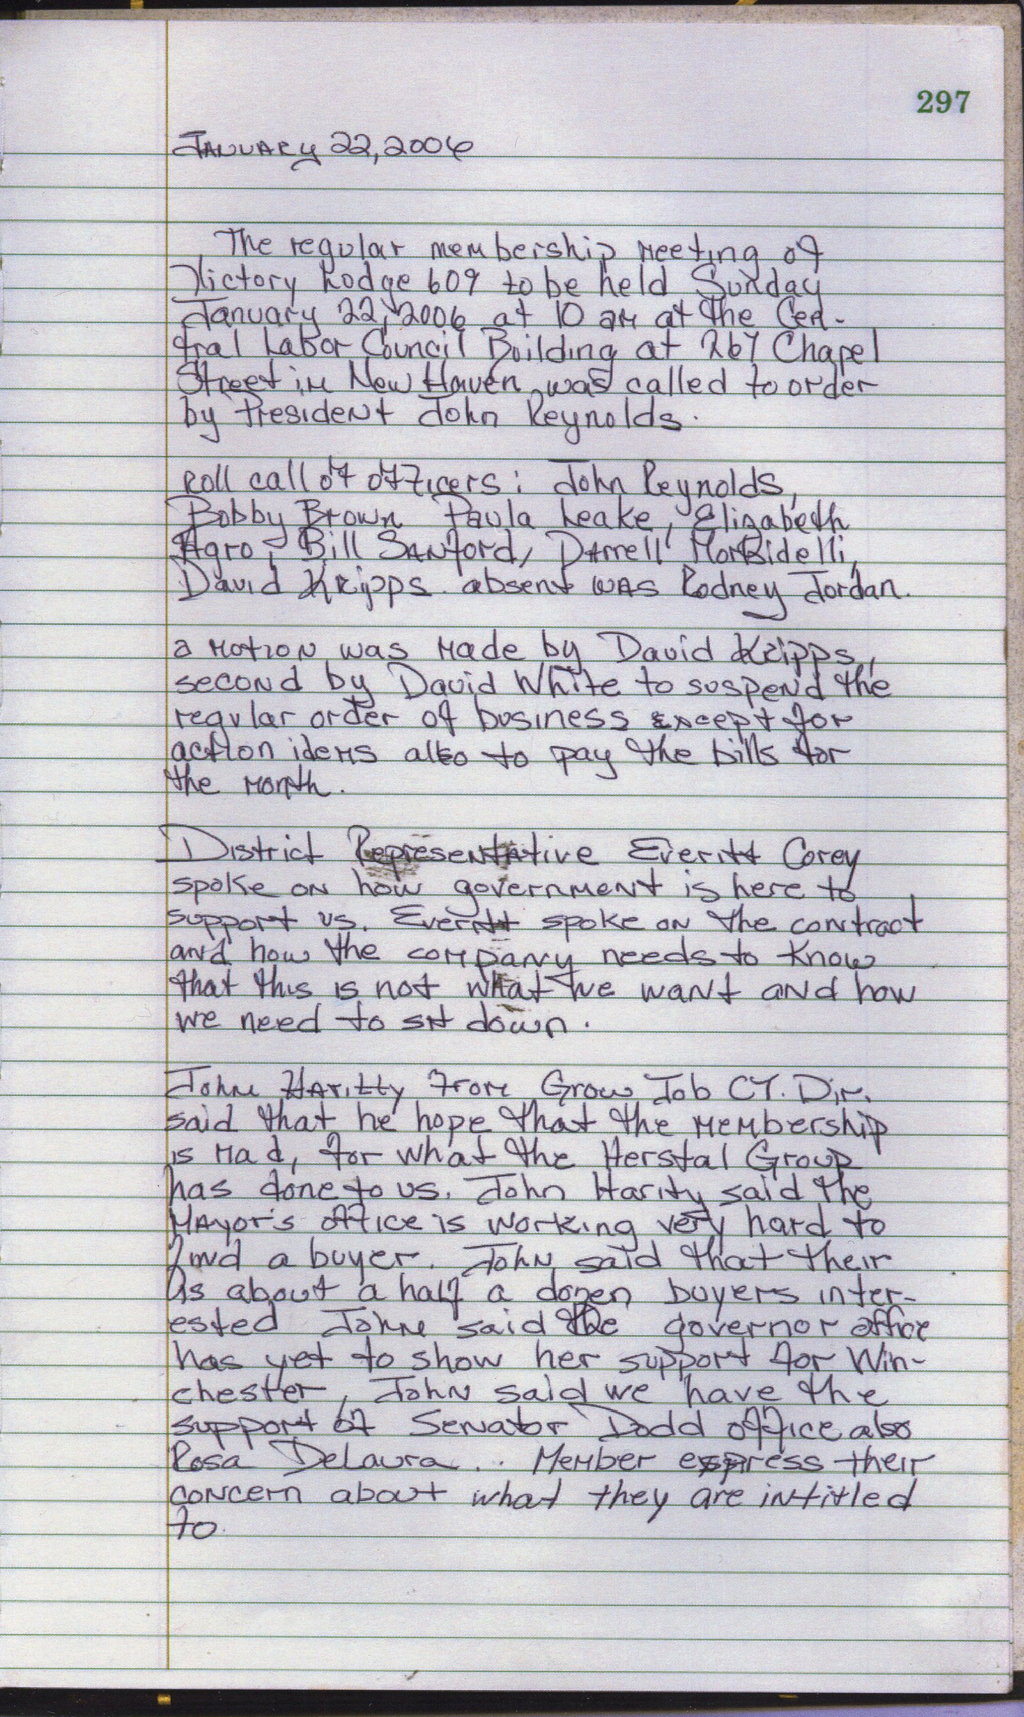 297
January 22, 2006
The regular membership meeting of
Victory Lodge 609 to be held Sunday
January 22, 2006 at 10 am at the Cen-
tral Labor Council Building at 267 Chapel
Street in New Haven was called to order
by President John Reynolds.
Roll call of officers: John Reynolds,
Bobby Brown Paula Leake, Elizabeth
Agro, Bill Sanford, Darrell Morbidelli,
David Kripps. absent was Rodney Jordan.
a motion was made by David Kripps,
second by David White to suspend the
regular order of business except for
action idems also to pay the bills for
the month.
District Representative Everitt Corey
spoke on how government is here to
support us. Everitt spoke on the contract
and how the company needs to know
that this is not what we want and how
we need to sit down.
John Haritty from Grow Job CT. Dir.
said that he hope that the membership
is mad, for what the Herstal Group
has done to us. John Harity said the
Mayor's office is working very hard to
find a buyer. John said that their
is about a half a dozen buyers inter-
ested John said the governor office
has yet to show her support for Win-
chester, John said we have the
support of Senator Dodd office also
Rosa DeLaura... Member express their
concern about what they are intitled
to.